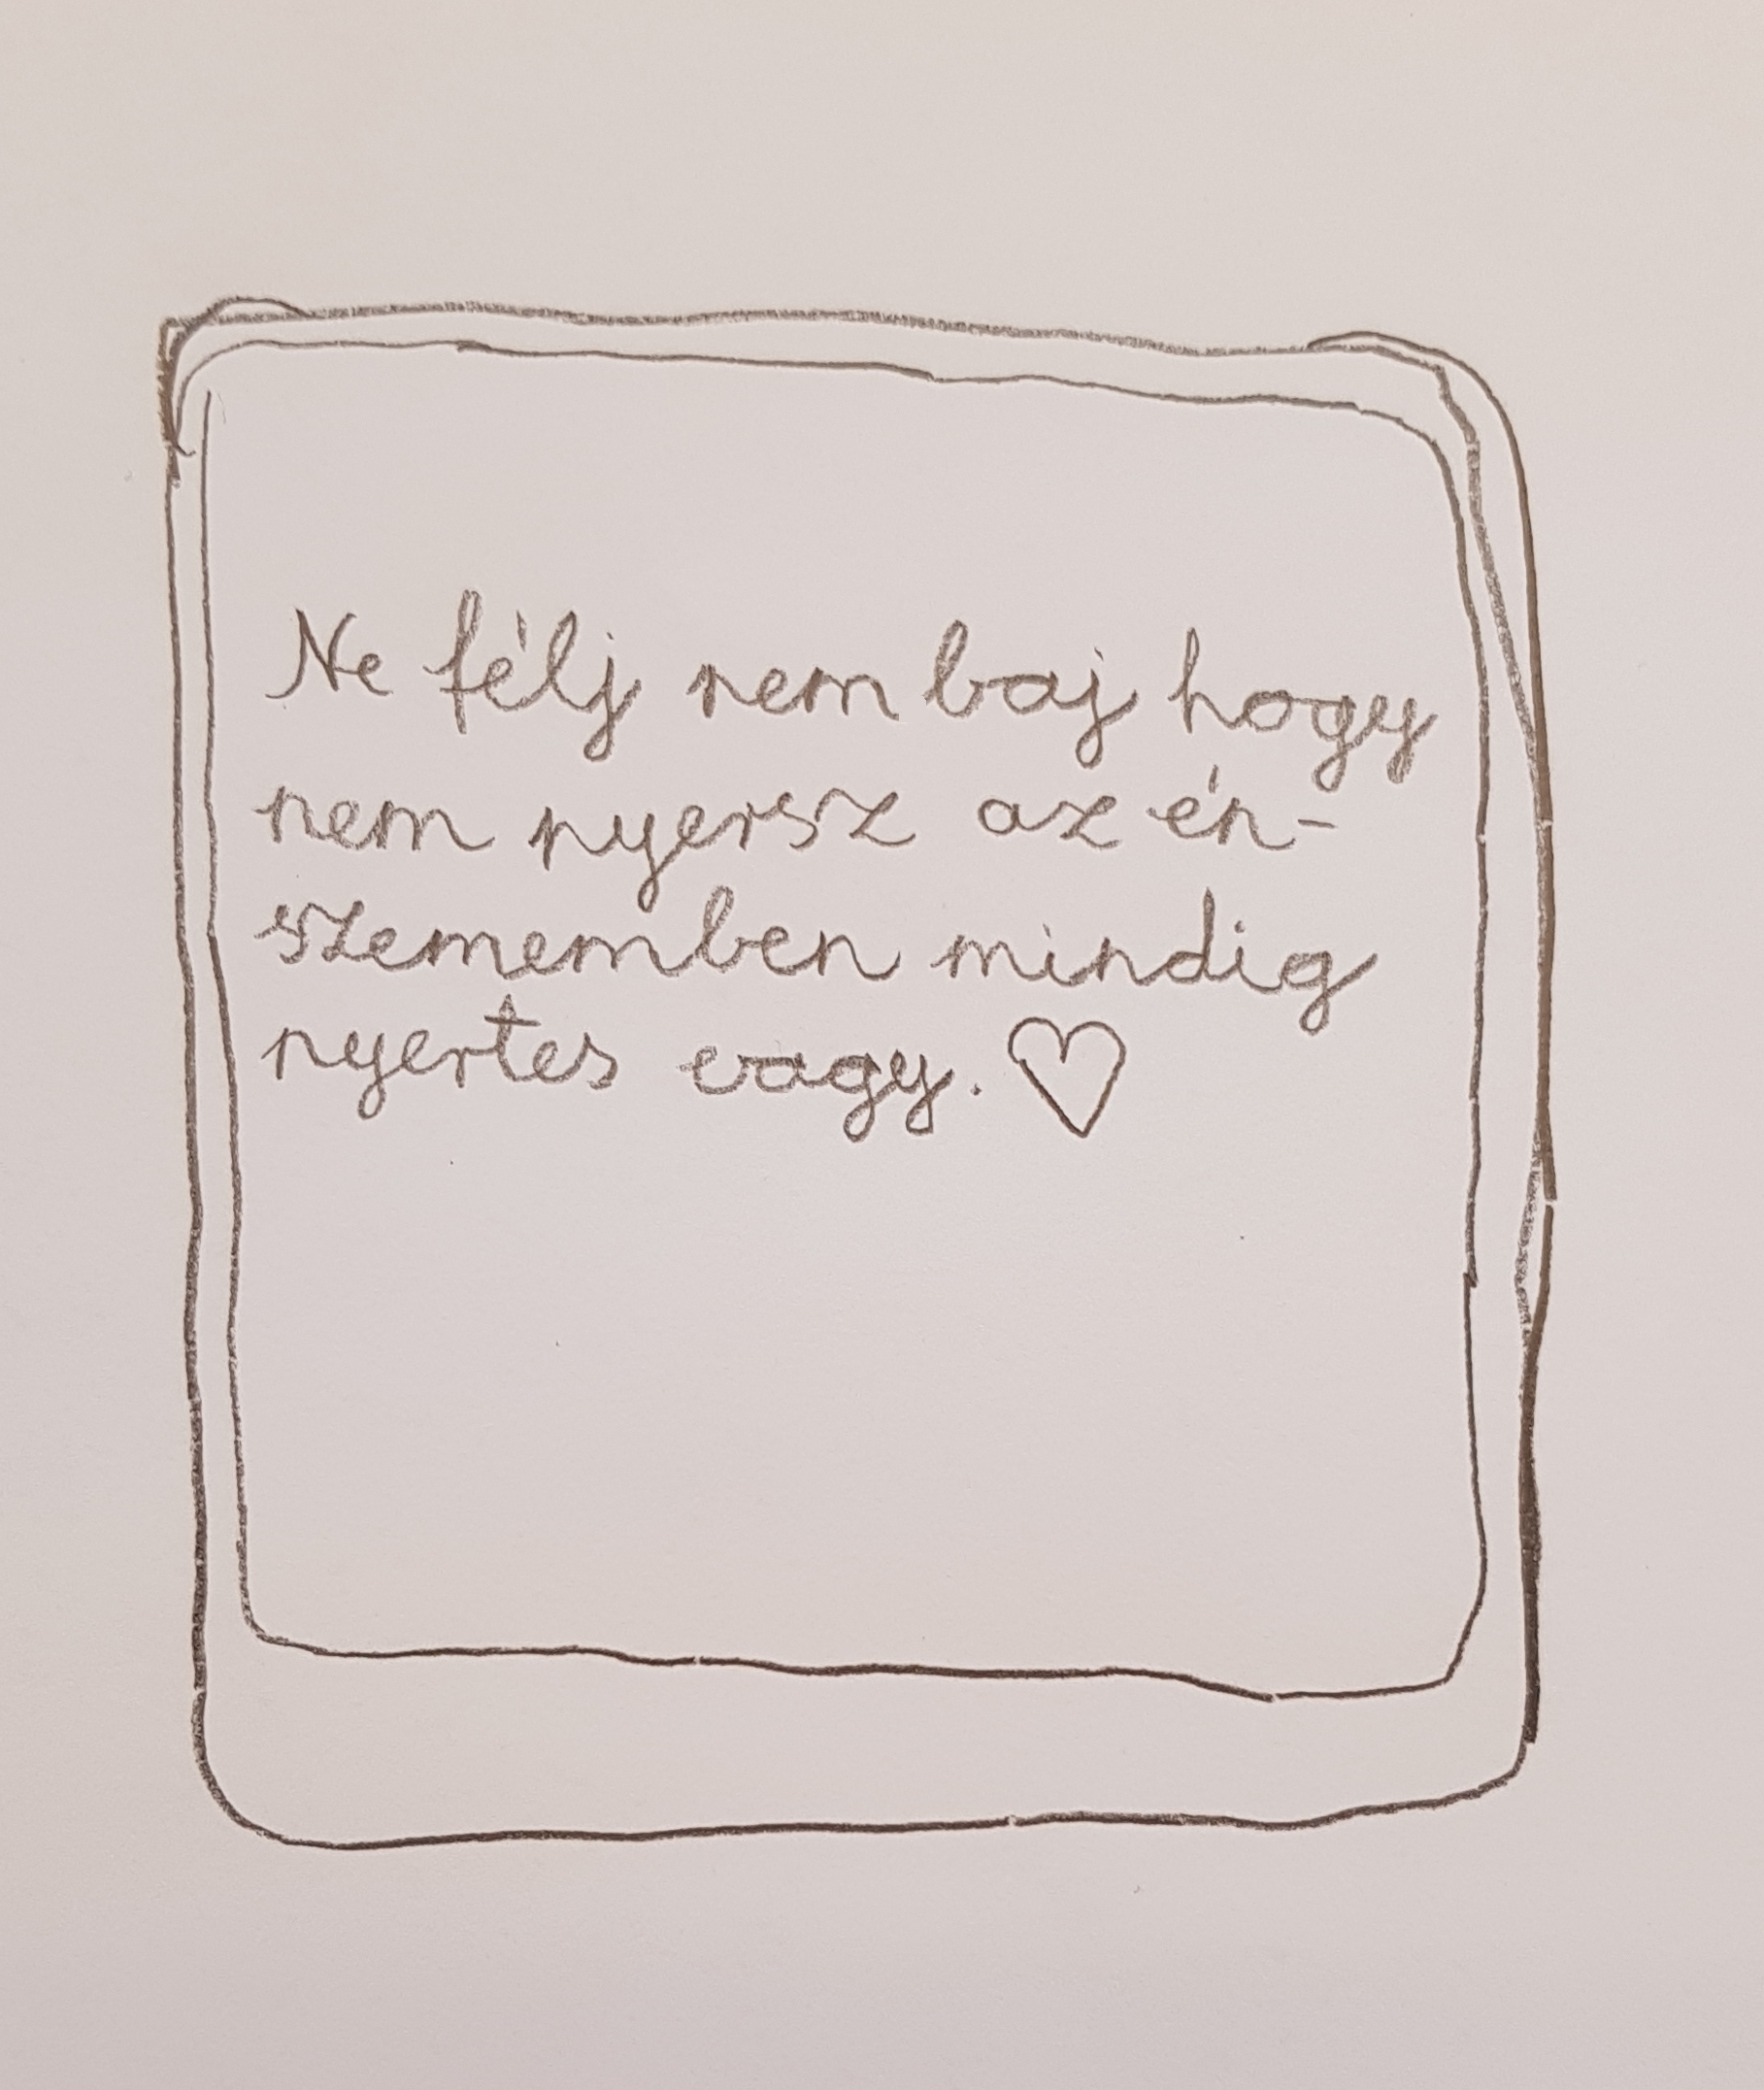 Ne félj nem baj hogy
nem nyersz az én-
szememben mindig
nyertes vagy. ♡